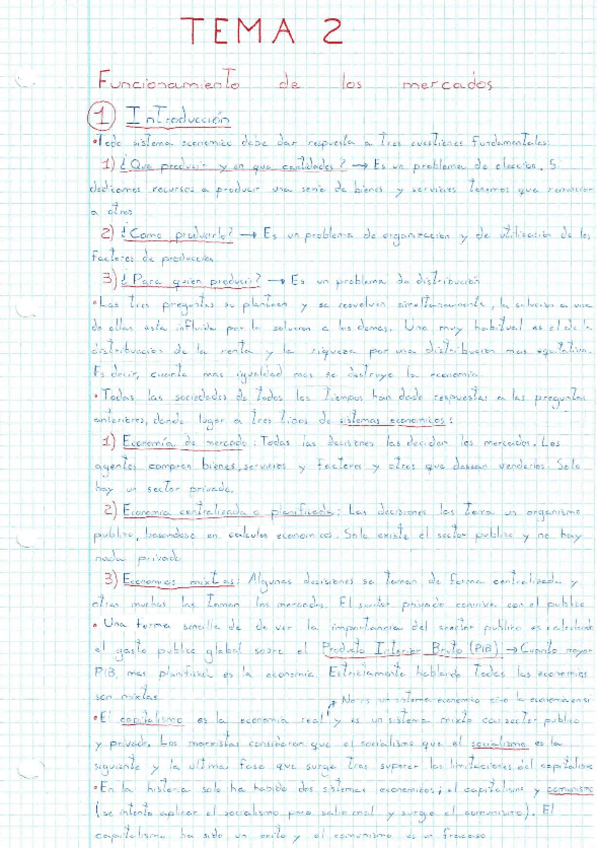 TEMA 2
Funcionamiento de los mercados
1 Introducción
•Todo sistema economico debe dar respuesta a tres cuestiones fundamentales:
1) ¿Que producir y en que cantidades? → Es un problema de eleccion. S
dedicamos recursos a producir una serie de bienes y servicios tenemos que renunciar
a otros
2) ¿Como producirlo? → Es un problema de organizacion y de utilizacion de los
factores de produccion
3) ¿Para quien producir? → Es un problema de distribución
•Las tres preguntas se plantean y se resuelven simultaneamente, la solucion a una
de ellas esta influida por la solucion a las demas. Uno muy habitual es el de la
distribucion de la renta y la riqueza por una distribucion mas equitativa.
Es decir, cuanta mas igualdad mas se destruye la economia
•Todas las sociedades de todos los tiempos han dado respuestas a las preguntas
anteriores, dando lugar a tres tipos de sistemas economicos:
1) Economía de mercado: Todas las decisiones las deciden los mercados. Los
agentes compran bienes, servicios y factores y otros que desean venderlos. Solo
hay un sector privado.
2) Economia centralizada o planificada: Las decisiones las toma un organismo
publico, basandose en calculos economicos. Solo existe el sector publico y no hay
nada privado
3) Economias mixtas: Algunas decisiones se toman de forma centralizada y
otras muchas las toman los mercados. El sector privado convive con el publico
• Una forma sencilla de de ver la importancia del sector publico es calculando
el gasto publico global sobre el Producto Interior Bruto (PIB) → Cuanto mayor
PIB, mas planificada es la economia. Estrictamente hablando todas las economias
son mixtas
No es un sistema economico sino la economia en si
•El capitalismo es la economia real y es un sistema mixto con sector publico
y privado. Los marxistas consideran que el socialismo que el socialismo es la
siguiente y la ultima fase que surge tras superar las limitaciones del capitalismo
•En la historia solo ha habido dos sistemas economicos; el capitalismo y comunismo
(se intento aplicar el socialismo pero salio mal y surgio el comunismo). El
capitalismo ha sido un exito y el comunismo es un fracaso